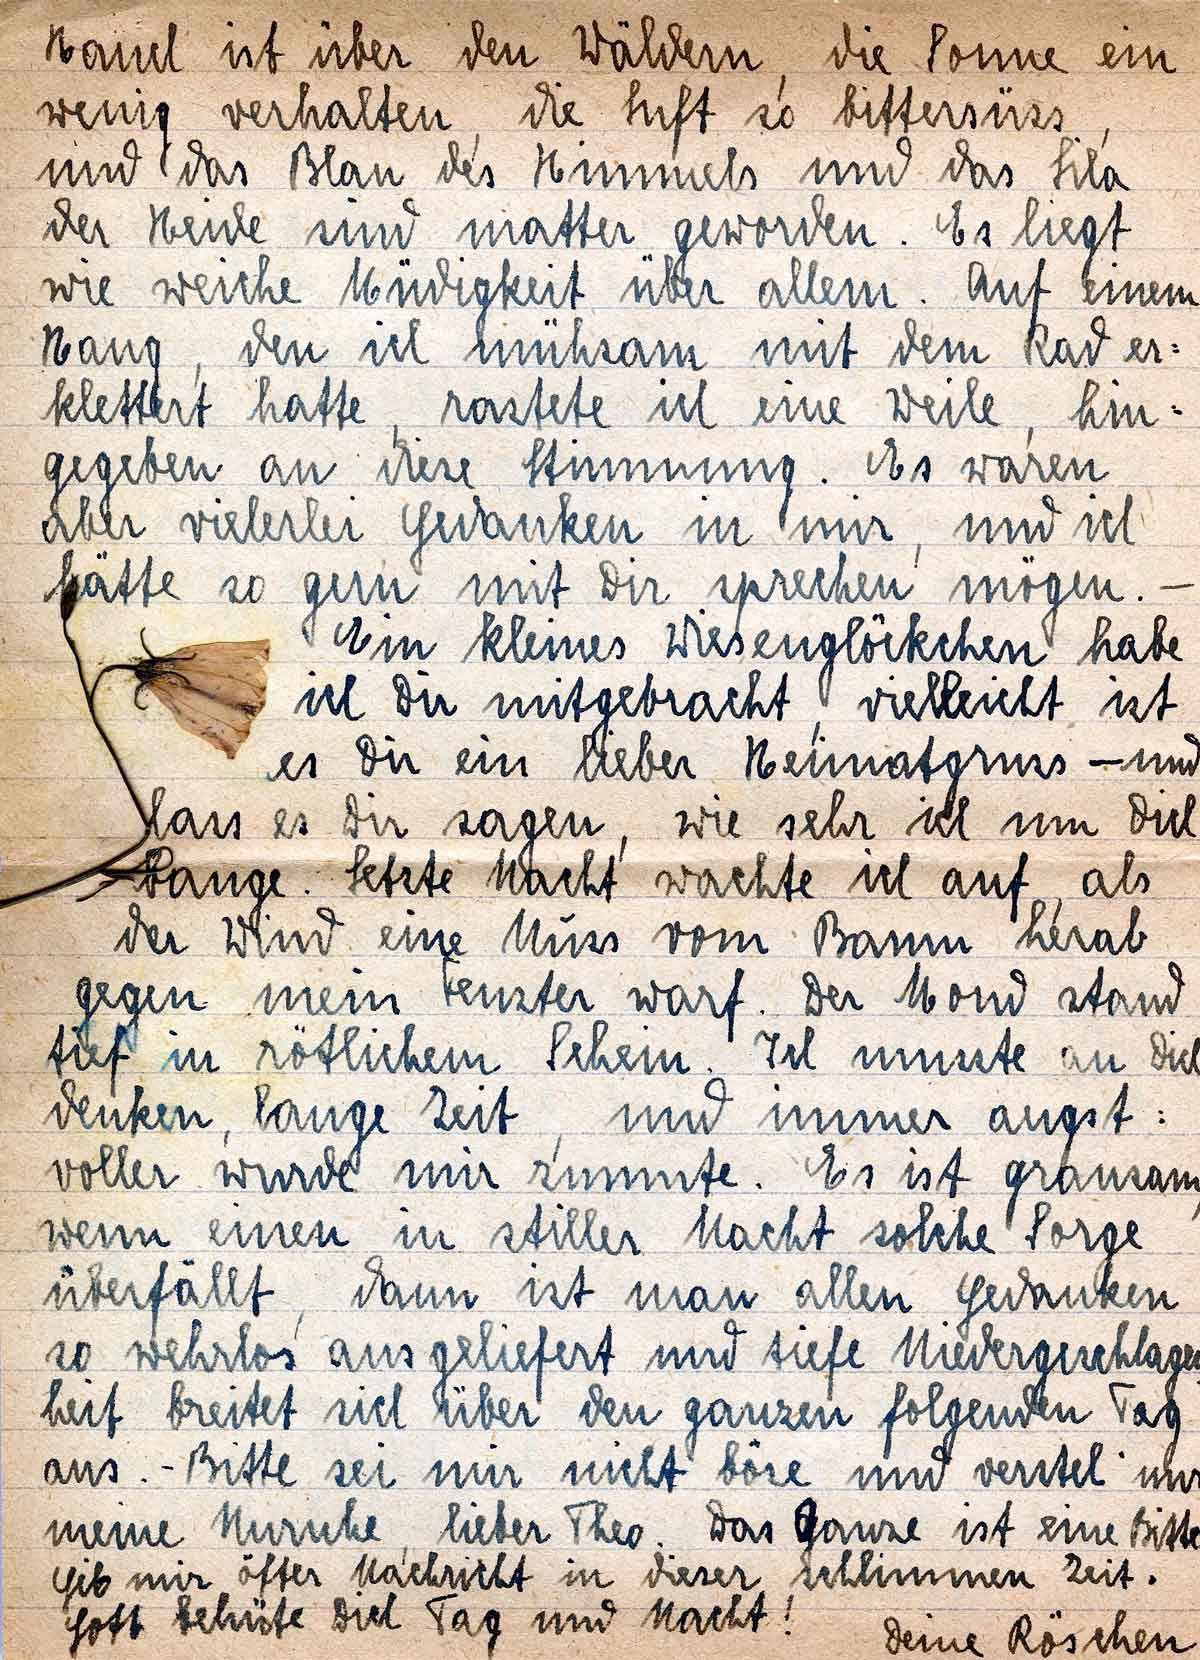 Hauch ist über den Wäldern, die Sonne ein
wenig verhalten, die Luft so bittersüss,
und das Blau des Himmels und das Lila
der Heide sind matter geworden. Es liegt
wie weiche Müdigkeit über allem. Auf einem
Hang, den ich mühsam mit dem Rad er:
klettert hatte, rastete ich eine Weile, hin:
gegeben an diese Stimmung. Es waren
aber vielerlei Gedanken in mir, und ich
hätte so gern mit Dir sprechen mögen. –
Ein kleines Wiesenglöckchen habe
ich Dir mitgebracht, vielleicht ist
es Dir ein lieber Heimatgruss – und
lass es Dir sagen, wie sehr ich um Dich
bange. Letzte Nacht wachte ich auf, als
der Wind eine Nuss vom Baum herab
gegen mein Fenster warf. Der Mond stand
tief in rötlichem Schein. Ich musste an Dich
denken, lange Zeit, und immer angst:
voller wurde mir zumute. Es ist grausam,
wenn einen in stiller Nacht solche Sorge
überfällt, dann ist man allen Gedanken
so wehrlos ausgeliefert und tiefe Niedergeschlagen
heit breitet sich über den ganzen folgenden Tag
aus. – Bitte sei mir nicht böse und versteh nur
meine Unruhe, lieber Theo. Das Ganze ist eine Bitte
Gib mir öfter Nachricht in dieser schlimmen Zeit.
Gott behüte Dich Tag und Nacht!
Deine Röschen